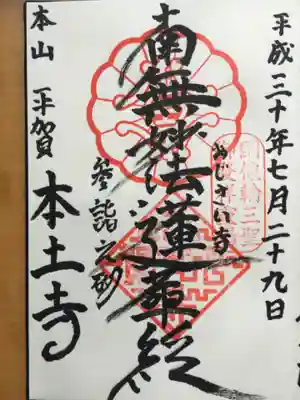 平成三十年七月二十九日
あじさい寺
南無妙法蓮華経
参詣之砌
本山 平賀 本土寺